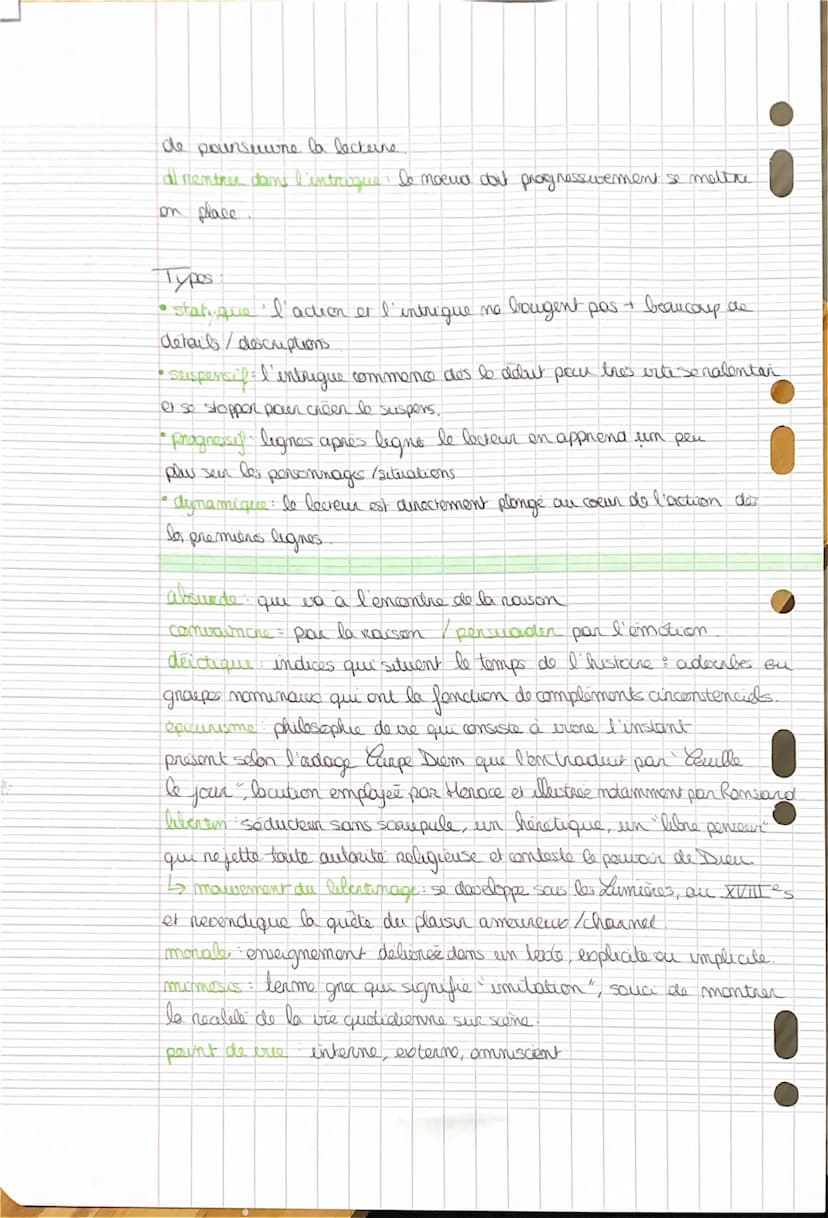 de poursuivre la lecture.
d) rentrer dans l'intrigue : le noeud doit progressivement se mettre
en place.
Types :
• statique : l'action et l'intrigue ne bougent pas + beaucoup de
détails / descriptions
• suspensif : l'intrigue commence dès le début pour très vite se ralentir
et se stopper pour créer le suspens.
• progressif : lignes après ligne le lecteur en apprend un peu
plus sur les personnages / situations
• dynamique : le lecteur est directement plongé au coeur de l'action dès
les premières lignes.
absurde : qui va à l'encontre de la raison
convaincre = par la raison / persuader par l'émotion.
déictique : indices qui situent le temps de l'histoire : adverbes ou
groupes nominaux qui ont la fonction de compléments circonstenciels.
épicurisme : philosophie de vie qui consiste à vivre l'instant
présent selon l'adage Carpe Diem que l'on traduit par "Cueille
le jour", locution employée par Horace et illustrée notamment par Ronsard
libertin : séducteur sans scrupule, un hérétique, un "libre penseur"
qui rejette toute autorité religieuse et conteste le pouvoir de Dieu.
↳ mouvement du libertinage : se développe sous les Lumières, au XVIIIe s
et revendique la quête du plaisir amoureux / charnel.
morale : enseignement délivrée dans un texte, explicite ou implicite.
mimesis : terme grec qui signifie "imitation", souci de montrer
la réalité de la vie quotidienne sur scène.
point de vue : interne, externe, omniscient